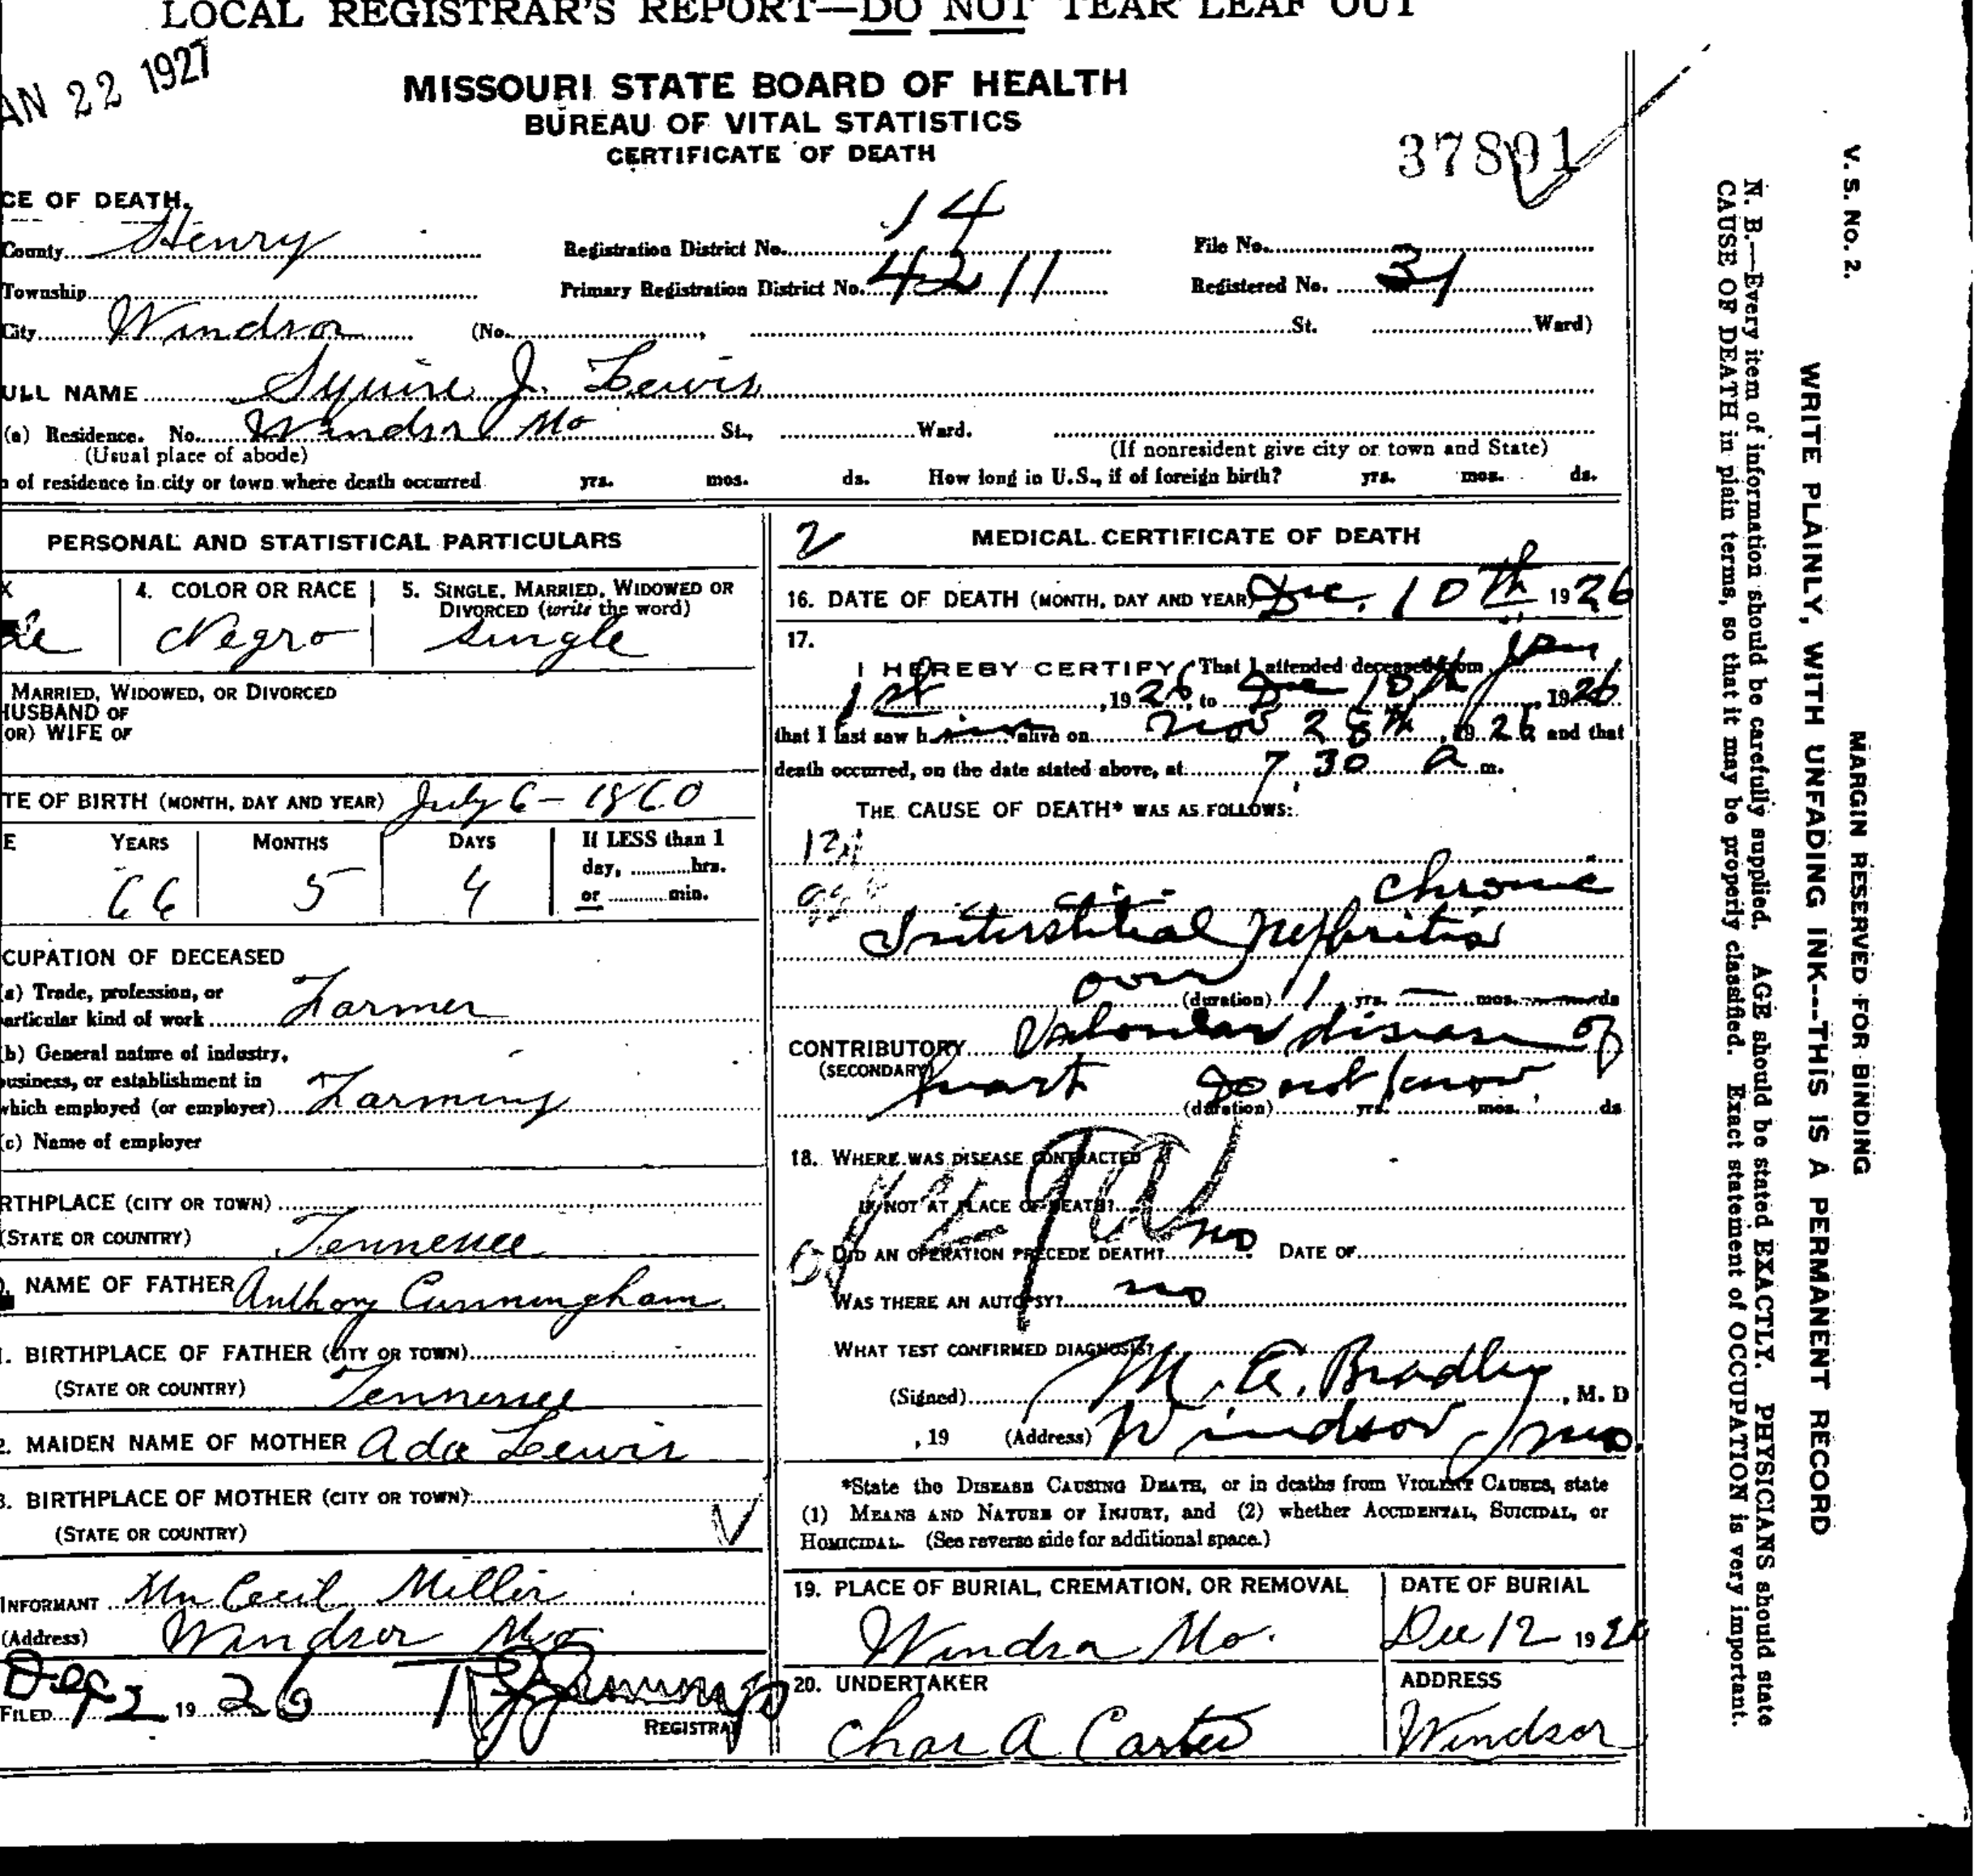 LOCAL REGISTRAR'S REPORT—DO NOT TEAR LEAF OUT
AN 22 1927
MISSOURI STATE BOARD OF HEALTH
BUREAU OF VITAL STATISTICS
CERTIFICATE OF DEATH
37891
CE OF DEATH.
County Henry Registration District No. 14 File No.
Township Primary Registration District No. 4211 Registered No. 31
City Windsor (No. , St. Ward)
ULL NAME Squire J. Lewis
(a) Residence. No. Windsor Mo St., Ward.
(Usual place of abode) (If nonresident give city or town and State)
of residence in city or town where death occurred yrs. mos. ds. How long in U.S., if of foreign birth? yrs. mos. ds.
PERSONAL AND STATISTICAL PARTICULARS
X 4. COLOR OR RACE 5. SINGLE, MARRIED, WIDOWED OR
DIVORCED (write the word)
le Negro Single
MARRIED, WIDOWED, OR DIVORCED
HUSBAND OF
(OR) WIFE OF
TE OF BIRTH (MONTH, DAY AND YEAR) July 6 - 1860
E YEARS MONTHS DAYS If LESS than 1
day, hrs.
66 5 4 or min.
CUPATION OF DECEASED
(a) Trade, profession, or
articular kind of work Farmer
(b) General nature of industry,
usiness, or establishment in
which employed (or employer) Farming
(c) Name of employer
RTHPLACE (CITY OR TOWN)
(STATE OR COUNTRY) Tennessee
. NAME OF FATHER Anthony Cunningham
. BIRTHPLACE OF FATHER (CITY OR TOWN)
(STATE OR COUNTRY) Tennessee
2. MAIDEN NAME OF MOTHER Ada Lewis
3. BIRTHPLACE OF MOTHER (CITY OR TOWN)
(STATE OR COUNTRY)
INFORMANT Mr Cecil Miller
(Address) Windsor Mo
FILED Dec 12 19 26 Jennings
REGISTRAR
2 MEDICAL CERTIFICATE OF DEATH
16. DATE OF DEATH (MONTH, DAY AND YEAR) Dec. 10th 1926
17.
I HEREBY CERTIFY, That I attended deceased from Jan
1st, 1926, to Dec 10th, 1926
that I last saw him alive on Nov 28th, 1926 and that
death occurred, on the date stated above, at 7.30 a m.
THE CAUSE OF DEATH* WAS AS FOLLOWS:
Chronic
Interstitial Nephritis
over (duration) 1 yrs. — mos. ds
CONTRIBUTORY Valvular disease of
(SECONDARY) heart Do not know
(duration) yrs. mos. ds
18. WHERE WAS DISEASE CONTRACTED
IF NOT AT PLACE OF DEATH?
DID AN OPERATION PRECEDE DEATH? no DATE OF
WAS THERE AN AUTOPSY? no
WHAT TEST CONFIRMED DIAGNOSIS?
(Signed) Bradley, M. D
, 19 (Address) Windsor, Mo.
*State the DISEASE CAUSING DEATH, or in deaths from VIOLENT CAUSES, state
(1) MEANS AND NATURE OF INJURY, and (2) whether ACCIDENTAL, SUICIDAL, or
HOMICIDAL. (See reverse side for additional space.)
19. PLACE OF BURIAL, CREMATION, OR REMOVAL DATE OF BURIAL
Windsor Mo. Dec 12 1926
20. UNDERTAKER ADDRESS
Chas A Carter Windsor
V. S. No. 2.
MARGIN RESERVED FOR BINDING
WRITE PLAINLY, WITH UNFADING INK---THIS IS A PERMANENT RECORD
N. B.—Every item of information should be carefully supplied. AGE should be stated EXACTLY. PHYSICIANS should state
CAUSE OF DEATH in plain terms, so that it may be properly classified. Exact statement of OCCUPATION is very important.